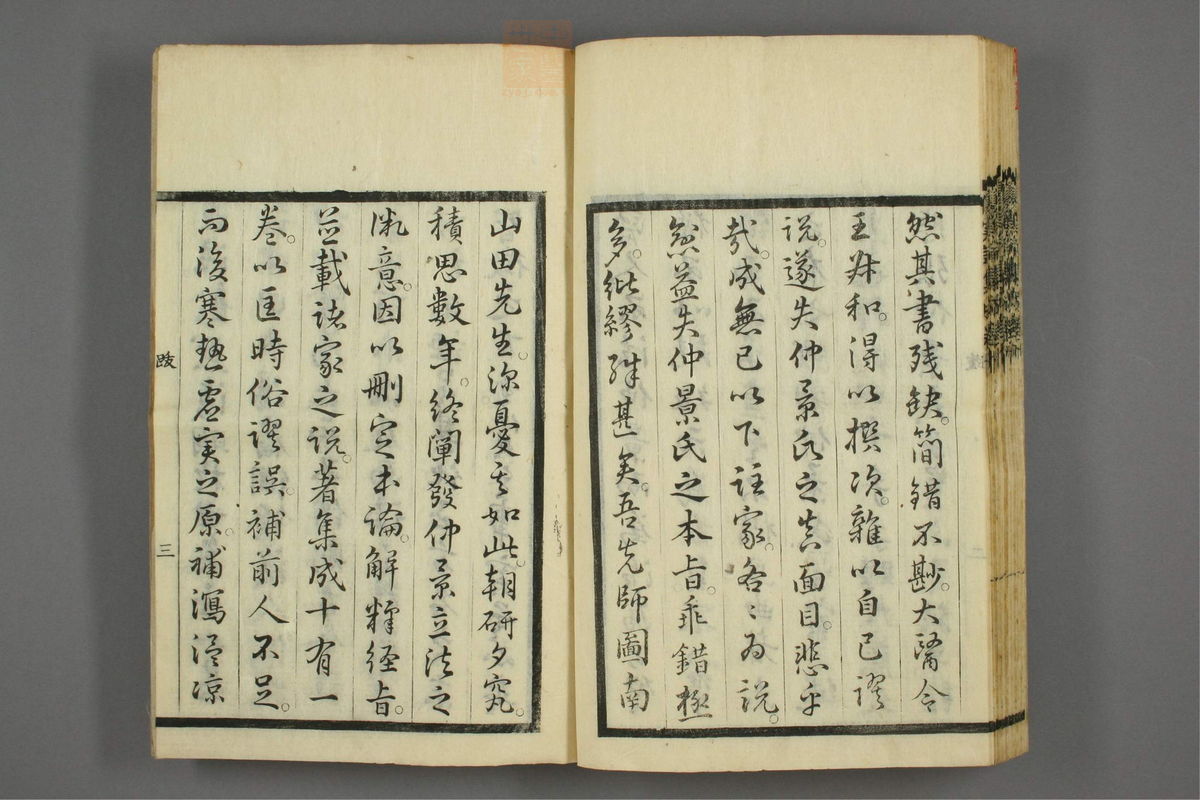 然其書残缺。簡錯不尠。大醫令
王叔和。得以撰次。雜以自己謬
說。遂失仲景氏之真面目。悲乎
哉。成無已以下註家。各〻为說。
愈益失仲景氏之本旨。乖錯極
多。紕繆殊甚矣。吾先師圖南
山田先生。深憂其如此。朝研夕究。
積思數年。終闡發仲景立法之
微意。因以刪定本論。解釋経旨。
並載諸家之說。著集成十有一
卷。以匡時俗謬誤。補前人不足。
而後寒熱虛实之原。補瀉温凉
跋
三